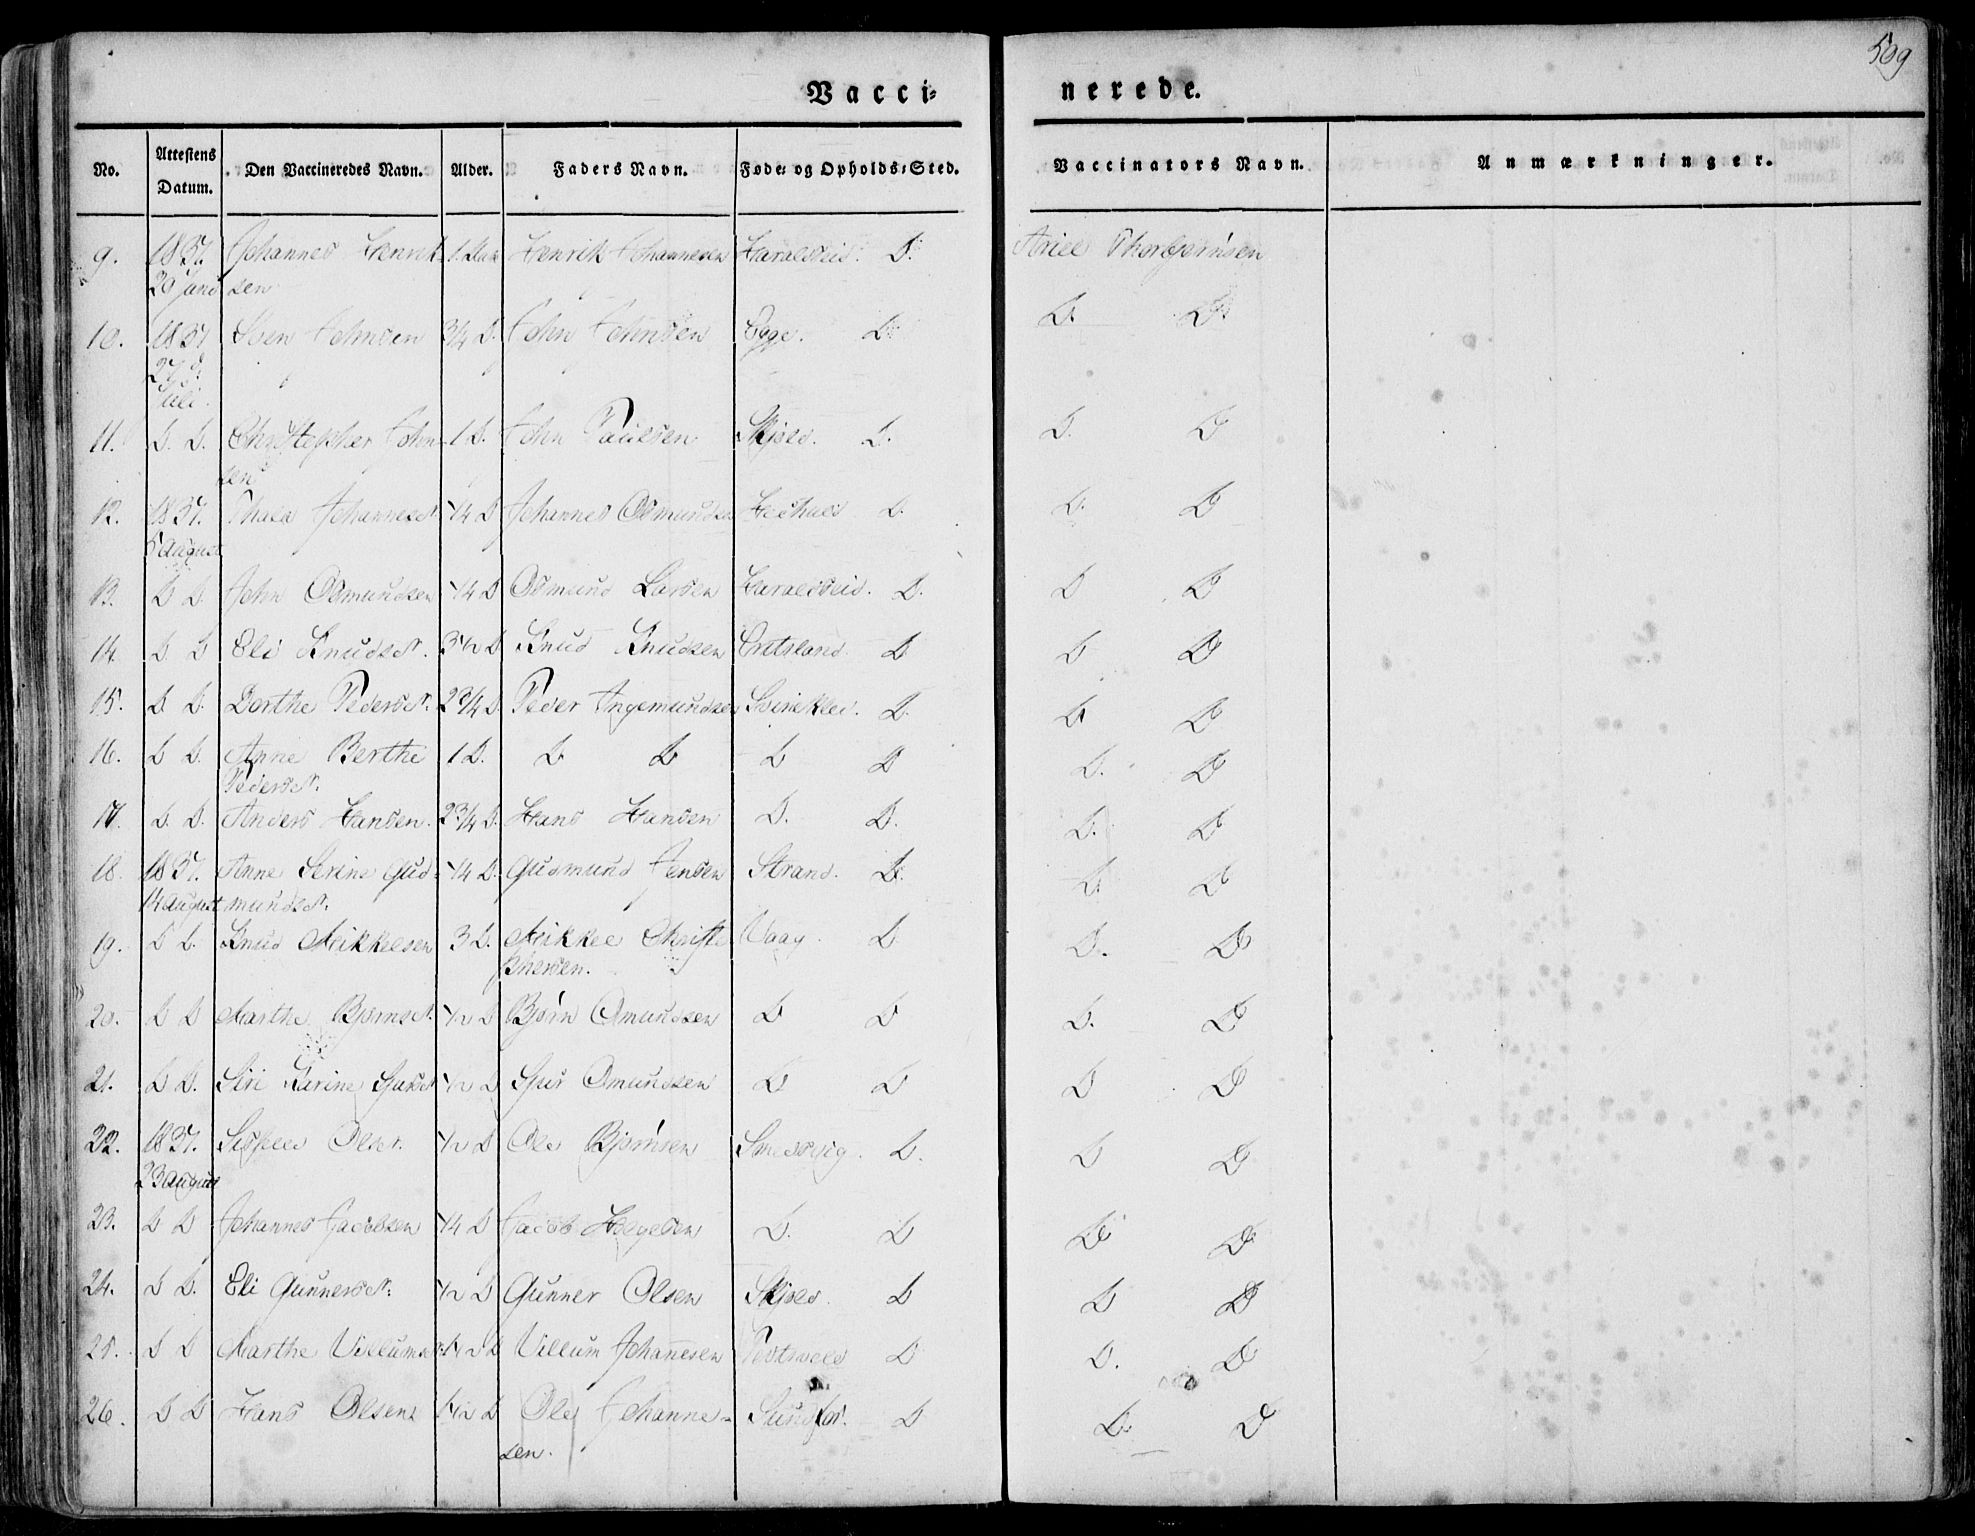 509
Vacci-
nerede.
No. Attestens Datum. Den Vaccineredes Navn. Alder. Faders Navn. Føde- og Opholds-Sted. Vaccinators Navn. Anmærkninger.
9. 1837. Johannes Henrik- 1 Henrik Johannesen D. Thorbjørnsen
20 Juni sen
10. 1837 Sven Johnsen 3/4 D. John Johnsen Egge. D. D. D.
27 d.
Juli.
11. D. D. Christopher John- 1 D. John Paulsen Skjold. D. D. D
sen
12. 1837. Johannesd. 1/4 D Johannes Osmundsen D. D. D
5 August
13. D D. John Osmundsen 1/4 D Osmund Larsen Haraldseid. D. D D
14. D. D Eli Knudsd. 3 1/2 D Knud Knudsen D D D
15. D. D. Dorthe Pedersd. 2 3/4 D. Peder Ingemundsen D. D D
16. D D. Anne Berthe 1 D. D D D D D. D
Pedersd.
17. D. D. Anders Hansen. 2 3/4 D. Hans Hansen D. D. D. D
18. 1837. Anne Serine Gud- 1/4 D. Gudmund Jensen Strand. D. D. D
14 August mundsd.
19. D D. Knud Mikkelsen 3 D. Mikkel Christo- Vaag. D D. D
phersen.
20. D D Marthe Bjørnsd. 1/2 D Bjørn Omundsen D D D. D
21. D D. Siri Karine 1/2 D Omundsen D D D D
22. 1837. Olsd. 1/2 D Ole Bjørnsen Smedvig. D. D D
23 August
23. D D Johannes Jacobsen 1/4 D Jacob Helgesen D. D D D
24. D D. Eli Gunnersd. 1/2 D Gunner Olsen Skjold. D D D
25. D D Marthe Villumsd. 1 1/2 D Villum Johannesen D D. D
26. D D Hans Olsen 1 1/2 D Ole Johanne- Sundfør. D D. D
sen.